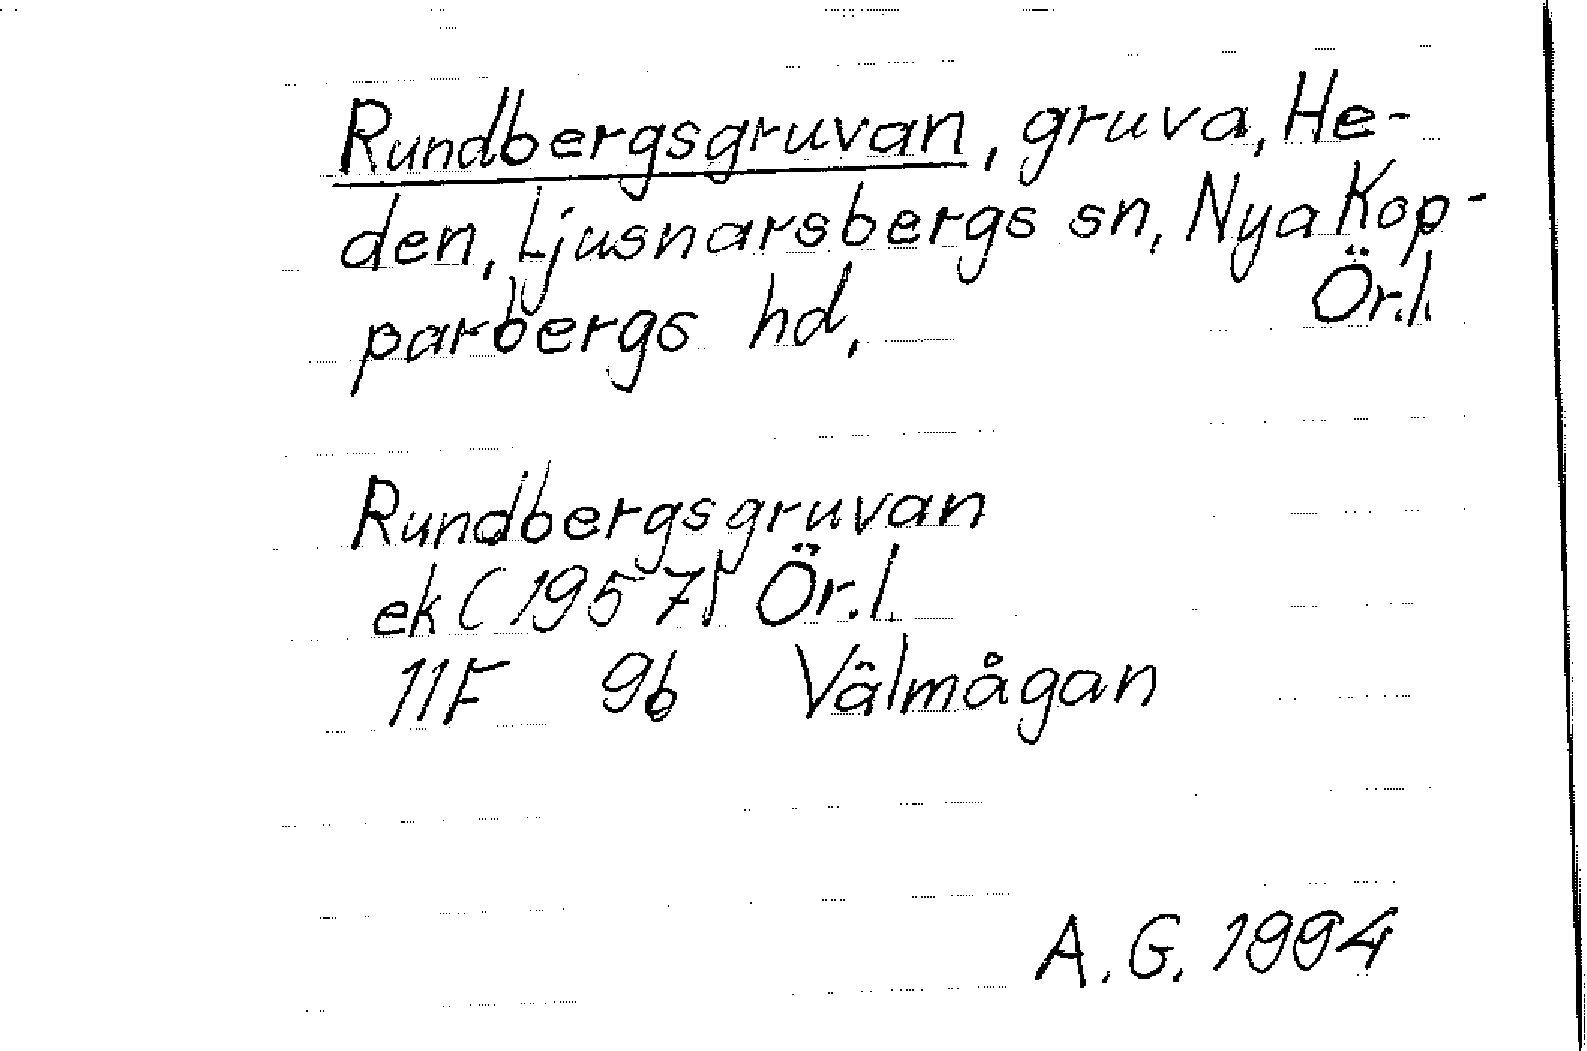 Rundbergsgruvan, gruva, He-
den, Ljusnarsbergs sn, Nya Kop-
parbergs hd, Ör.l.
Rundbergsgruvan
ek (1957) Ör.l.
11F 9b Välmågan
A.G. 1994